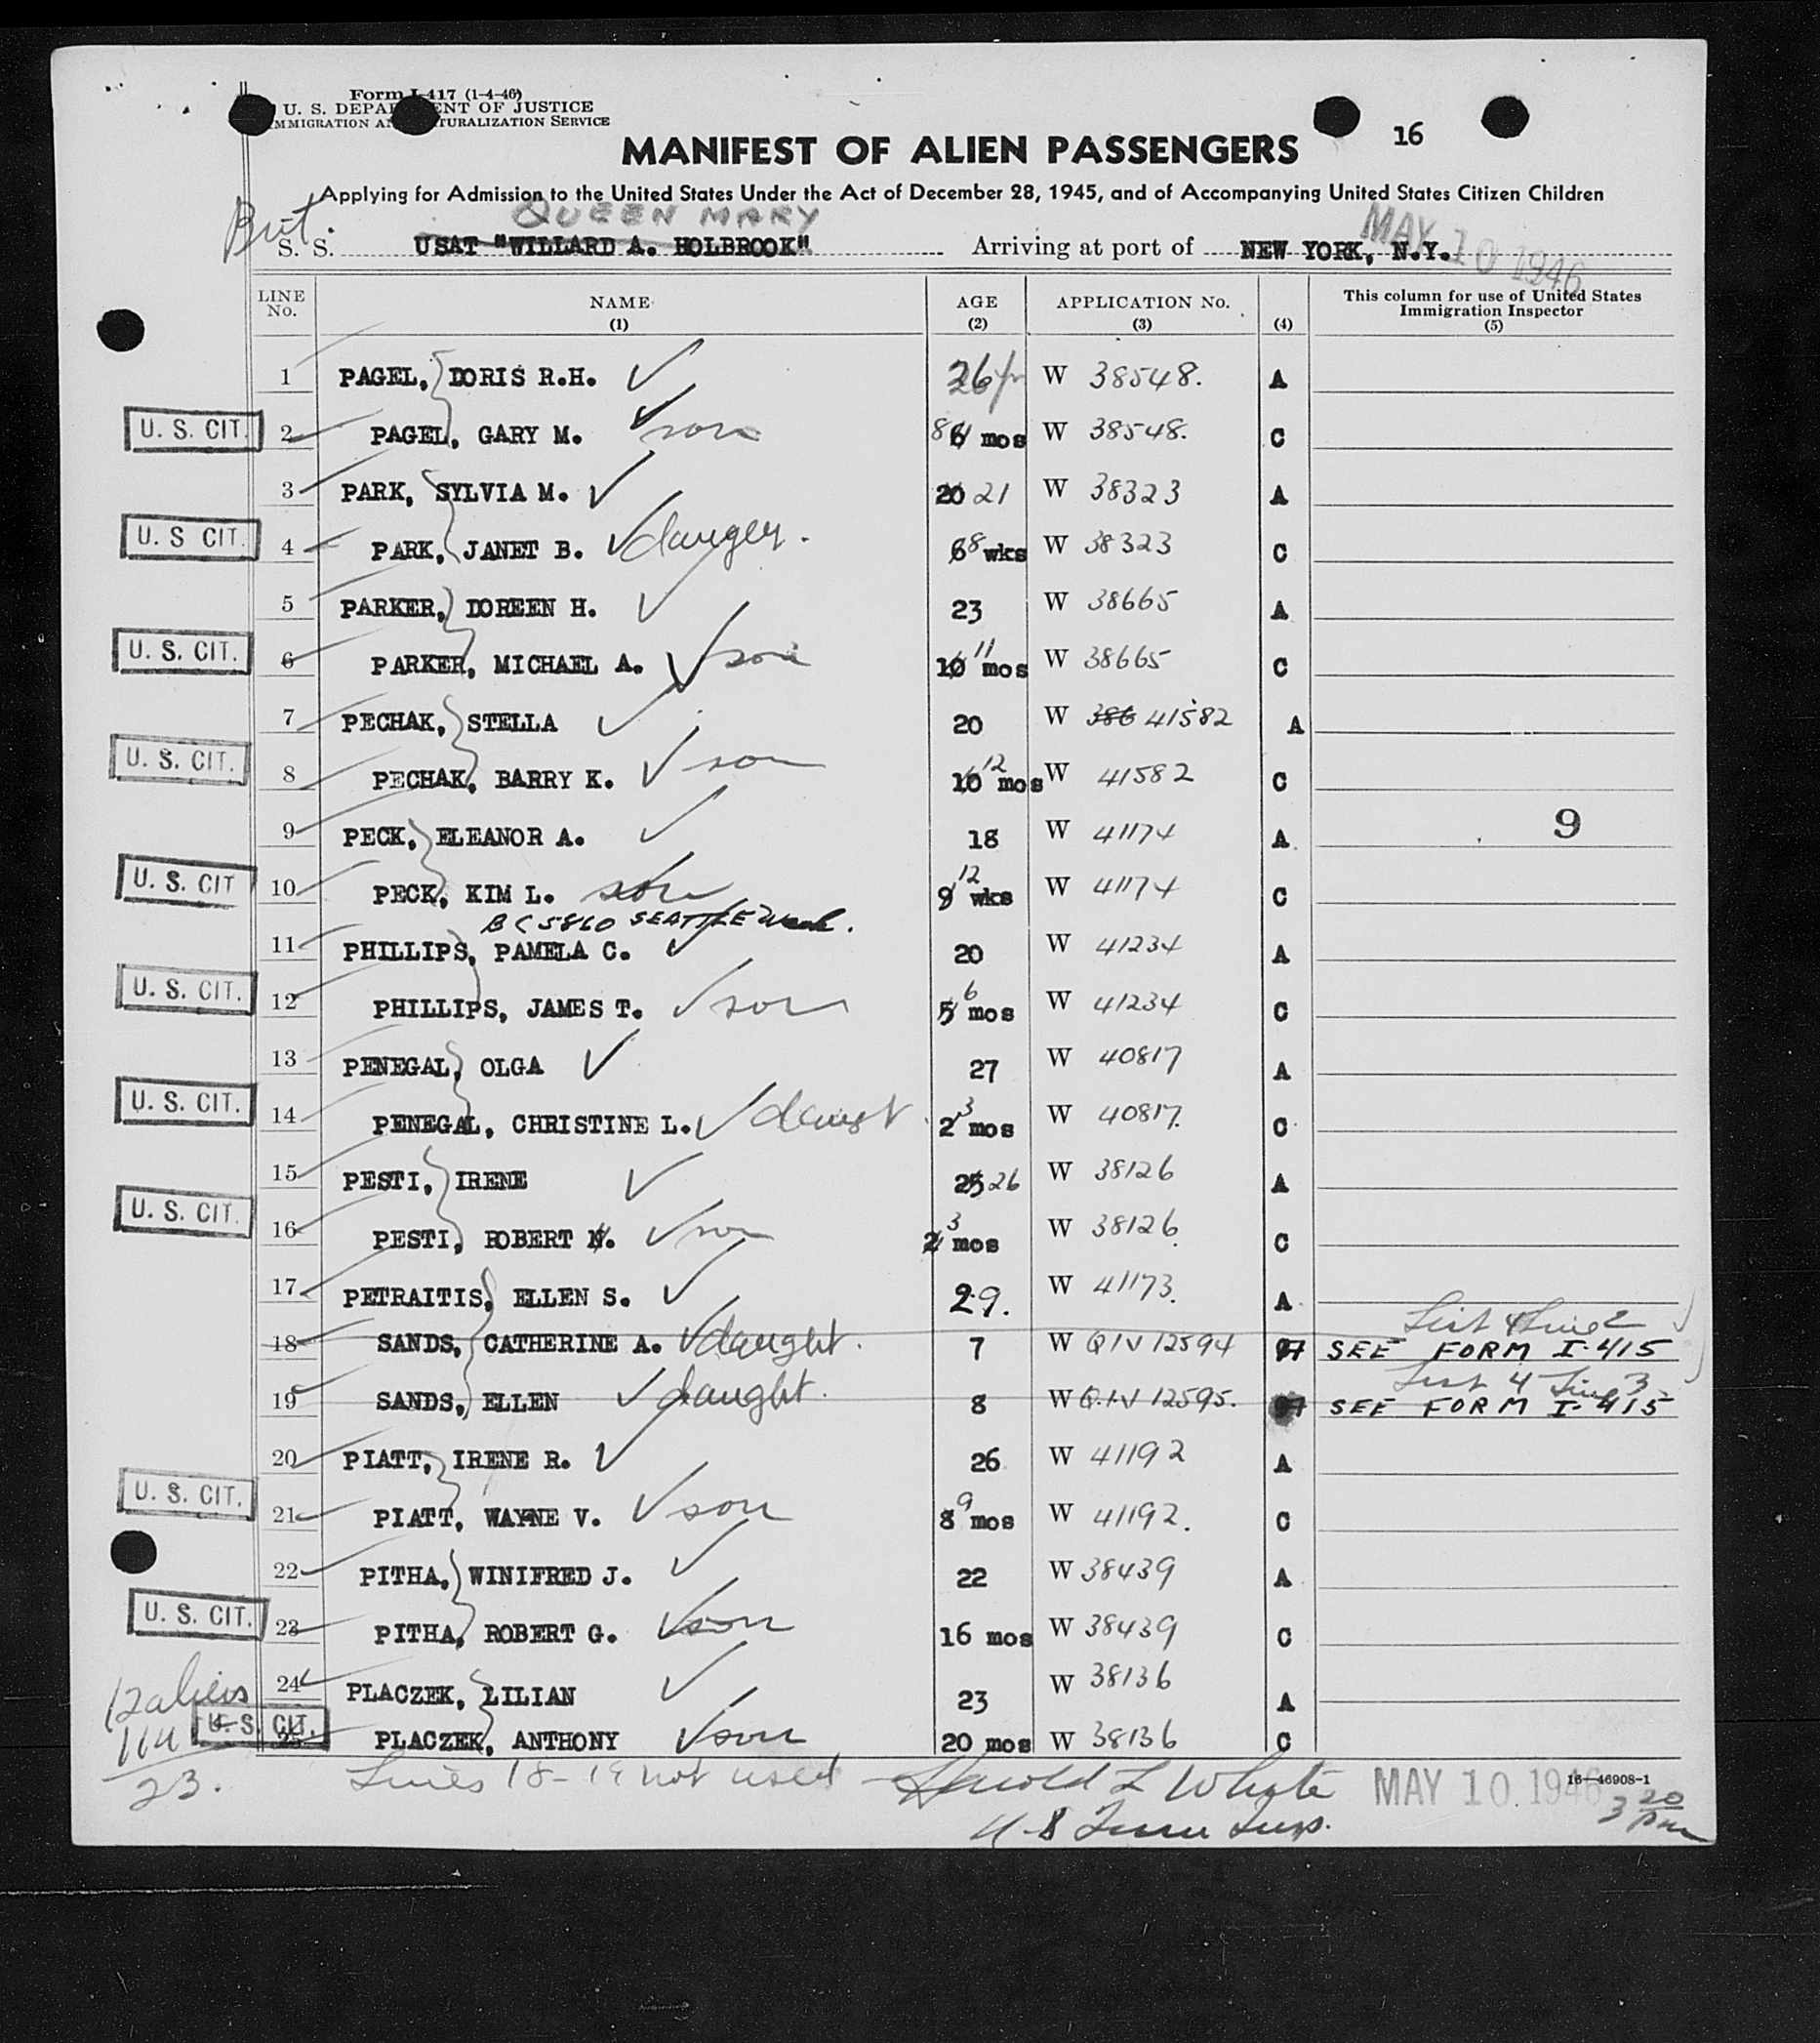 Form I-417 (1-4-46)
U. S. DEPARTMENT OF JUSTICE
IMMIGRATION AND NATURALIZATION SERVICE
16
MANIFEST OF ALIEN PASSENGERS
Applying for Admission to the United States Under the Act of December 28, 1945, and of Accompanying United States Citizen Children
Brit. QUEEN MARY MAY 10 1946
S. S. USAT "WILLARD A. HOLBROOK" Arriving at port of NEW YORK, N.Y.
LINE No. NAME (1) AGE (2) APPLICATION No. (3) (4) This column for use of United States Immigration Inspector (5)
1 PAGEL, DORIS R.H. 26 W 38548. A
U. S. CIT. 2 PAGEL, GARY M. son 8 mos W 38548. C
3 PARK, SYLVIA M. 20 21 W 38323 A
U. S CIT. 4 PARK, JANET B. 6 8 wks W 38323 C
5 PARKER, DOREEN H. 23 W 38665 A
U. S. CIT. 6 PARKER, MICHAEL A. son 10 11 mos W 38665 C
7 PECHAK, STELLA 20 W 386 41582 A
U. S. CIT. 8 PECHAK, BARRY K. son 10 12 mos W 41582 C
9 PECK, ELEANOR A. 18 W 41174 A
9
U. S. CIT 10 PECK, KIM L. son 9 12 wks W 41174 C
BC 5860 SEATTLE Wash.
11 PHILLIPS, PAMELA C. 20 W 41234 A
U. S. CIT. 12 PHILLIPS, JAMES T. son 5 6 mos W 41234 C
13 PENEGAL, OLGA 27 W 40817 A
U. S. CIT. 14 PENEGAL, CHRISTINE L. daught 2 3 mos W 40817. C
15 PESTI, IRENE 25 26 W 38126 A
U. S. CIT. 16 PESTI, ROBERT N. son 2 3 mos W 38126. C
17 PETRAITIS, ELLEN S. 29. W 41173. A
List 4 Line 2
18 SANDS, CATHERINE A. daught. 7 W QIV 12594 SEE FORM I-415
List 4 Line 3
19 SANDS, ELLEN daught. 8 W Q.I.V 12595. SEE FORM I-415
20 PIATT, IRENE R. 26 W 41192 A
U. S. CIT. 21 PIATT, WAYNE V. son 8 9 mos W 41192. C
22 PITHA, WINIFRED J. 22 W 38439 A
U. S. CIT. 23 PITHA, ROBERT G. son 16 mos W 38439 C
24 PLACZEK, LILIAN 23 W 38136 A
U. S. CIT. 25 PLACZEK, ANTHONY son 20 mos W 38136 C
12 aliens
11 U
23.
Lines 18-19 not used Harold L Whyte MAY 10 1946 16—46908-1
U.S Imm Insp. 3 20 pm